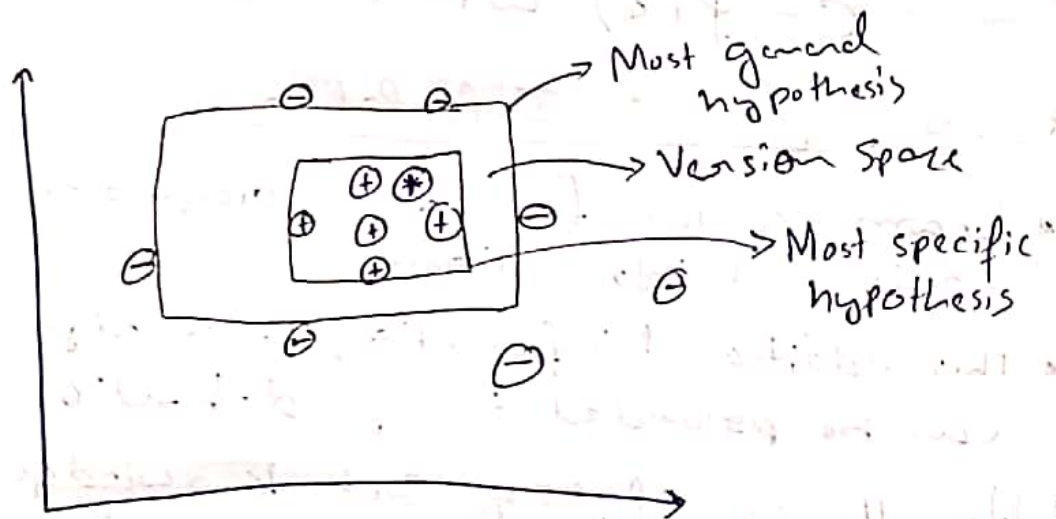 Most general
hypothesis
Version Space
Most specific
hypothesis